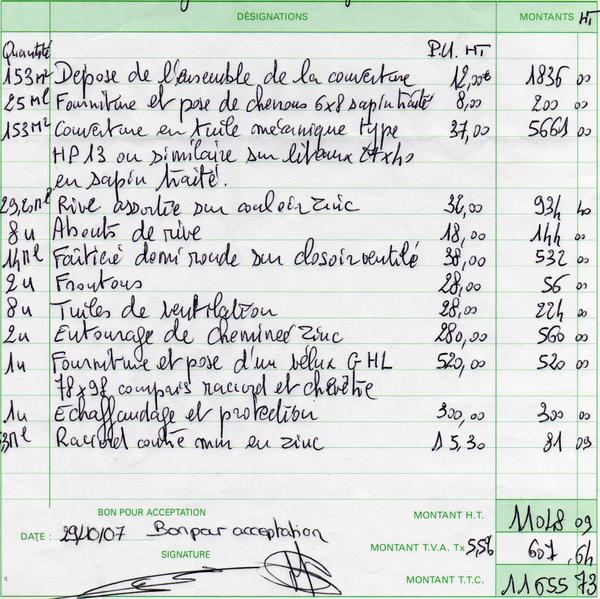 DÉSIGNATIONS MONTANTS HT
Quantité P.U. HT
153 m² Depose de l'ensemble de la couverture 12,00€ 1836 00
25 ml Fourniture et pose de chenons 6x8 sapin traité 8,00 200 00
153 m² Couverture en tuile mécanique type 37,00 5661 00
HP 13 ou similaire sur litaux 27x40
en sapin traité.
29,20 ml Rive assortie sur couloir zinc 32,00 934 40
8 u Abouts de rive 18,00 144 00
14 ml Faîtière demi ronde sur closoir ventilé 38,00 532 00
2 u Frontons 28,00 56 00
8 u Tuiles de ventilation 28,00 224 00
2 u Entourage de cheminée zinc 280,00 560 00
1 u Fourniture et pose d'un vélux GHL 520,00 520 00
78x98 compris raccord et chevêtre
1 u Echaffaudage et protection 300,00 300 00
ml Raccord contre mur en zinc 15,30 81 09
BON POUR ACCEPTATION
MONTANT H.T. 11048 09
DATE : 29/10/07 Bon pour acceptation
MONTANT T.V.A. Tx 5,5% 607,64
SIGNATURE
MONTANT T.T.C. 11655 73